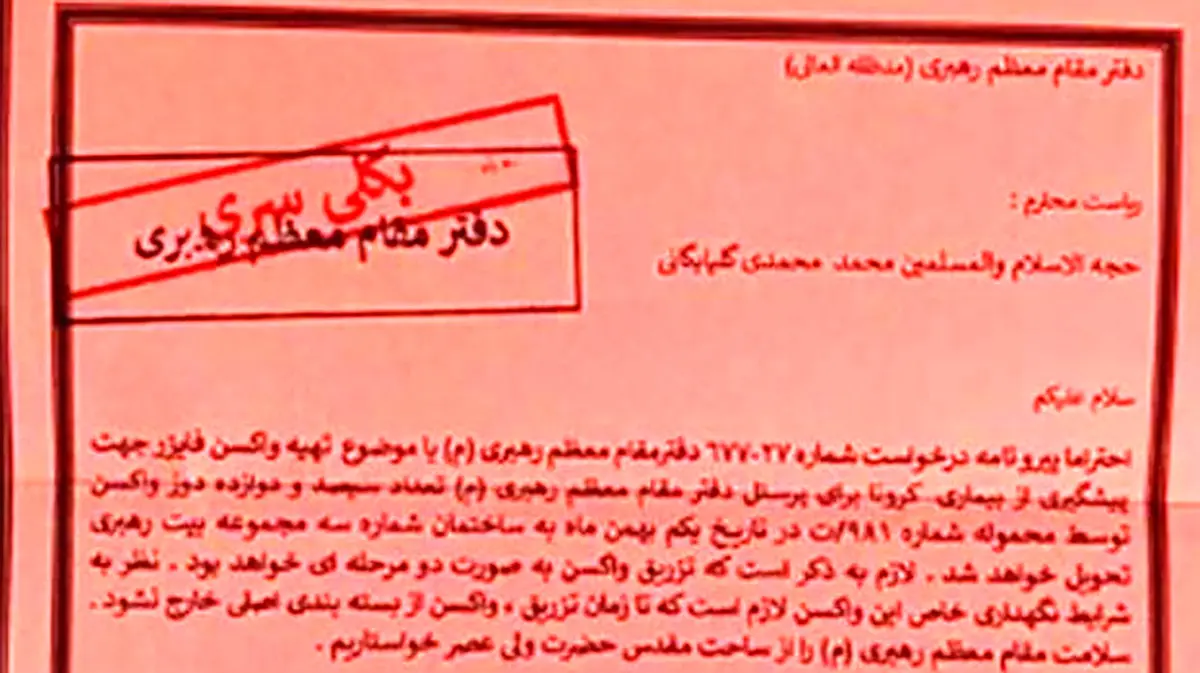 دفتر مقام معظم رهبری (مدظله العالی)
بکلی سری
دفتر مقام معظم رهبری
ریاست محترم :
حجه الاسلام والمسلمین محمد محمدی گلپایگانی
سلام علیکم
احتراما پیرو نامه درخواست شماره ٦٧٧٠٢٧ دفترمقام معظم رهبری (م) با موضوع تهیه واکسن فایزر جهت
پیشگیری از بیماری کرونا برای پرسنل دفتر مقام معظم رهبری (م) تعداد سیصد و دوازده دوز واکسن
توسط محموله شماره ٩٨١/ت در تاریخ یکم بهمن ماه به ساختمان شماره سه مجموعه بیت رهبری
تحویل خواهد شد . لازم به ذکر است که تزریق واکسن به صورت دو مرحله ای خواهد بود . نظر به
شرایط نگهداری خاص این واکسن لازم است که تا زمان تزریق ، واکسن از بسته بندی اصلی خارج نشود .
سلامت مقام معظم رهبری (م) را از ساحت مقدس حضرت ولی عصر خواستاریم .